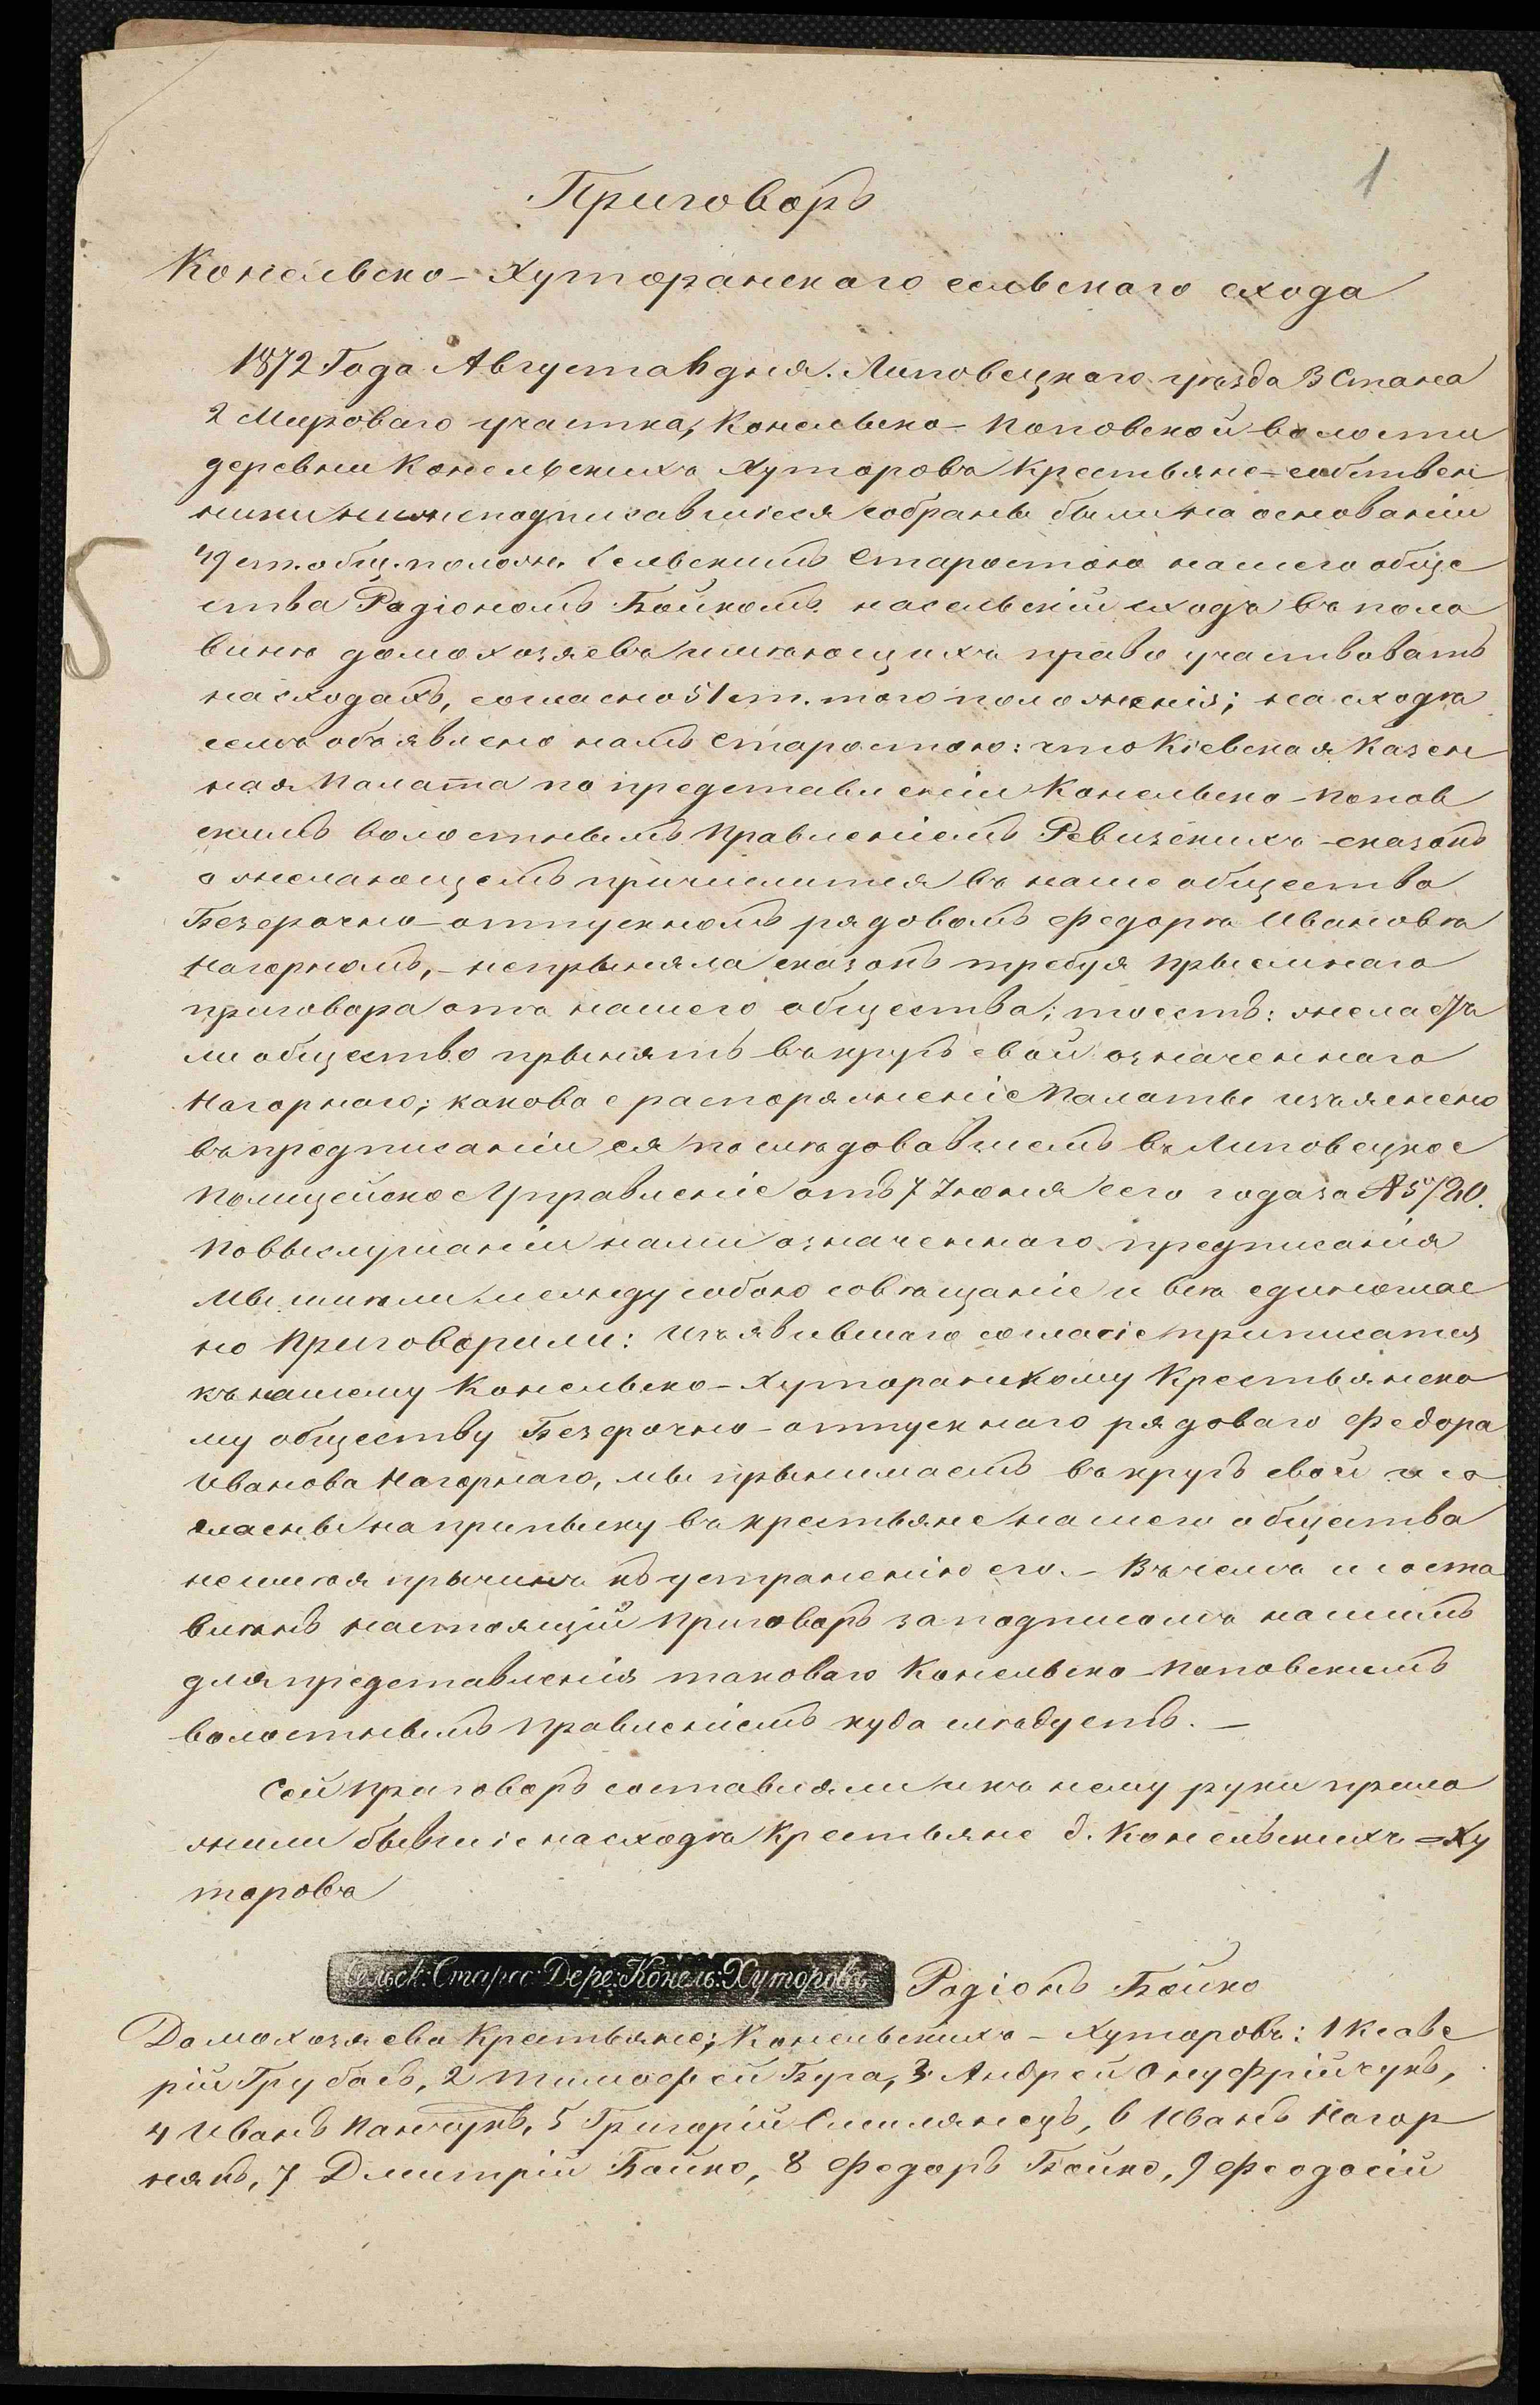 1
Приговоръ
Конельско-Хуторянскаго сельскаго схода
1872 Года Августа 6 дня. Липовецкаго уѣзда 3 Стана
2 Мироваго участка, Конельско-Поповской волости
деревни Конельскихъ Хуторовъ Крестьяне-собствен
ники нижеподписавшіеся собраны были на основаніи
49 ст. общ. полож. Сельскимъ Старостою нашего обще
ства Радіономъ Бойкомъ на сельскій сходъ въ поло
вину домохозяевъ имѣющихъ право участвовать
на сходахъ, согласно 51 ст. того положенія; на сходѣ
семъ объявлено намъ Старостою: что Кіевская Казен
ная Палата по представленіи Конельско-Попов
скимъ волостнымъ Правленіемъ Ревизскихъ-сказокъ
о желающемъ причислится въ наше общества
Безсрочно-отпускномъ рядовомъ Федорѣ Ивановѣ
Нагорномъ,- непрыняла сказокъ требуя прыемнаго
приговора отъ нашего общества; тоесть: желаетъ
ли общество прынять въ кругъ свой означеннаго
Нагорнаго; каковое распоряженіе Палаты изъяснено
въ предписаніи ея послѣдовавшемъ въ Липовецкое
Полицейское Управленіе отъ 7 Іюня сего года за № 5720.
По выслушаніи нами означеннаго предписанія
мы имѣли между собою совѣщаніе и всѣ единоглас
но Приговорили: Изъявившаго согласіе приписатся
къ нашему Конельско-Хуторянскому Крестьянско
му обществу Безсрочно-отпускнаго рядоваго Федора
Иванова Нагорнаго, мы прынимаемъ въ кругъ свой и со
гласны на приписку въ крестьяне нашего общества
не имѣя прычинъ къ устраненію его.- Въ чемъ и соста
вивъ настоящій Приговоръ за подписомъ нашимъ
для представленія таковаго Конельско-Поповскимъ
волостнымъ Правленіемъ куда слѣдуетъ.-
Сей Приговоръ составляли и къ нему руки прило
жили бывшіе на сходѣ Крестьяне д. Конельскихъ=Ху
торовъ
Сельск: Старос: Дере: Конель: Хуторовъ Радіонъ Бойко
Домохозяева Крестьяне; Конельскихъ-Хуторовъ: 1 Ксаве
рій Грубасъ, 2 Тимофей Буга, 3 Андрей Онуфрійчукъ,
4 Иванъ Панчукъ, 5 Григорій Смилянецъ, 6 Иванъ Нагор
някъ, 7 Дмитрій Бойко, 8 Федоръ Бойко, 9 Феодосій